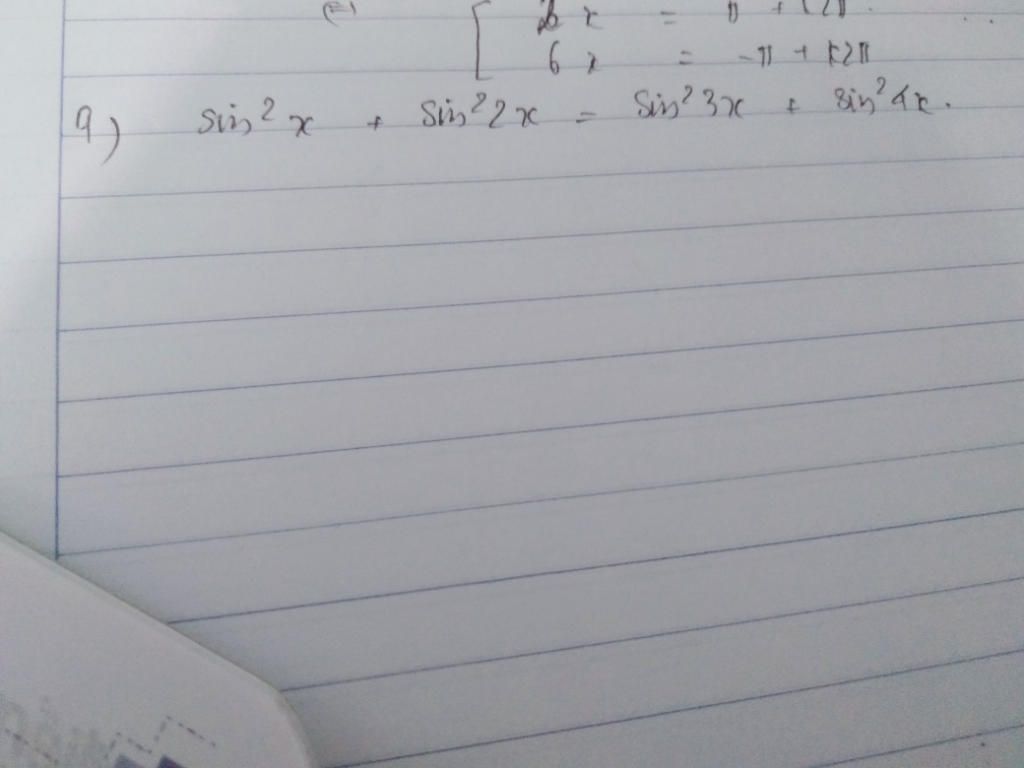 x = π + k2π
6x = -π + k2π
9) sin²x + sin²2x = sin²3x + sin²4x.